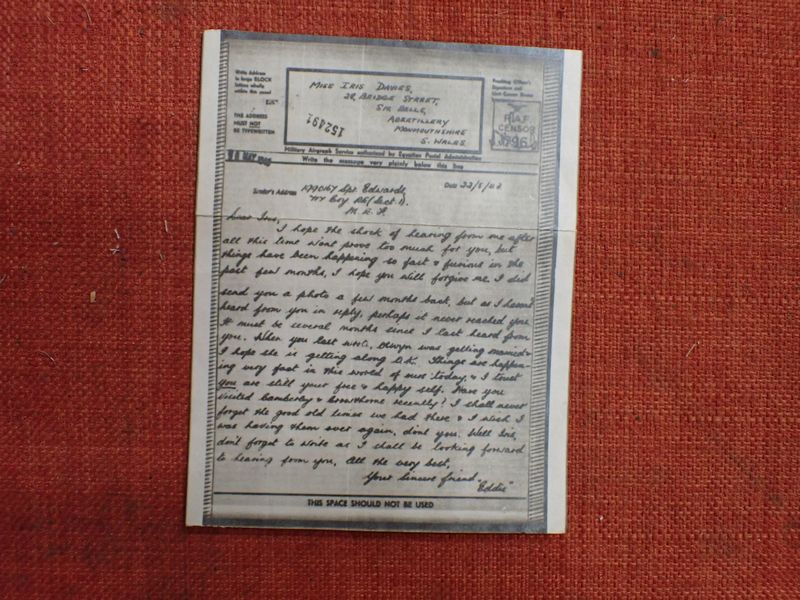 Write Address
in large BLOCK
letters wholly
within this panel
THE ADDRESS
MUST NOT
BE TYPEWRITTEN
MISS IRIS DAVIES,
28, BRIDGE STREET,
SIX BELLS,
ABERTILLERY
MONMOUTHSHIRE
S. WALES
152491
R.A.F.
CENSOR
Military Airgraph Service authorised by Egyptian Postal Administration
Write the message very plainly below this line
Sender's Address Spr. Edwards,
Coy RE (Sect. 1).
M. E. F.
Date
Dear Iris,
I hope the shock of hearing from me after
all this time wont prove too much for you, but
things have been happening so fast & furious in the
past few months, I hope you will forgive me. I did
send you a photo a few months back, but as I havent
heard from you in reply, perhaps it never reached you.
It must be several months since I last heard from
you. When you last wrote, was getting married &
I hope she is getting along O.K. Things are happen-
ing very fast in this world of ours today, & I trust
you are still your free & happy self. Have you
visited Camberley & Crowthorne recently? I shall never
forget the good old times we had there & I wish I
was having them over again, dont you. Well Iris,
don't forget to write as I shall be looking forward
to hearing from you, All the very best,
Your sincere friend
"Eddie"
THIS SPACE SHOULD NOT BE USED